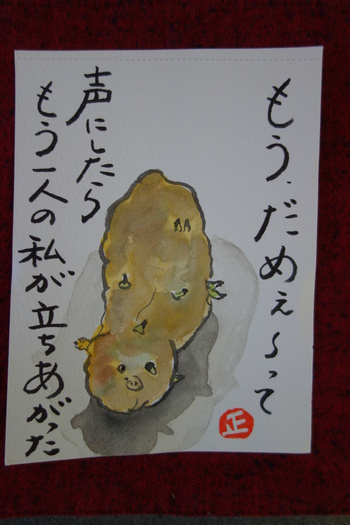 もう、だめぇ〜って
声にしたら
もう一人の私が立ちあがった
正